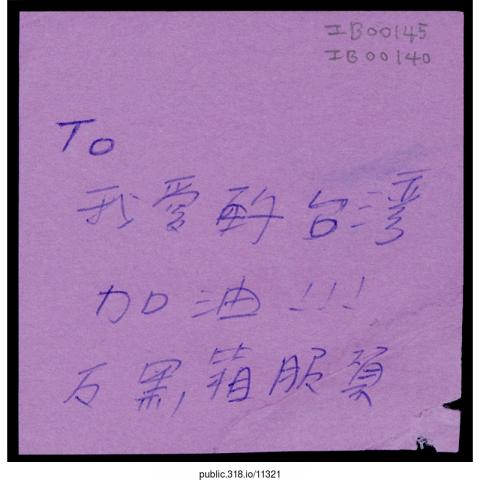 IB00145
IB00140
To
我愛的台灣
加油!!!
反黑箱服貿
public.318.io/11321